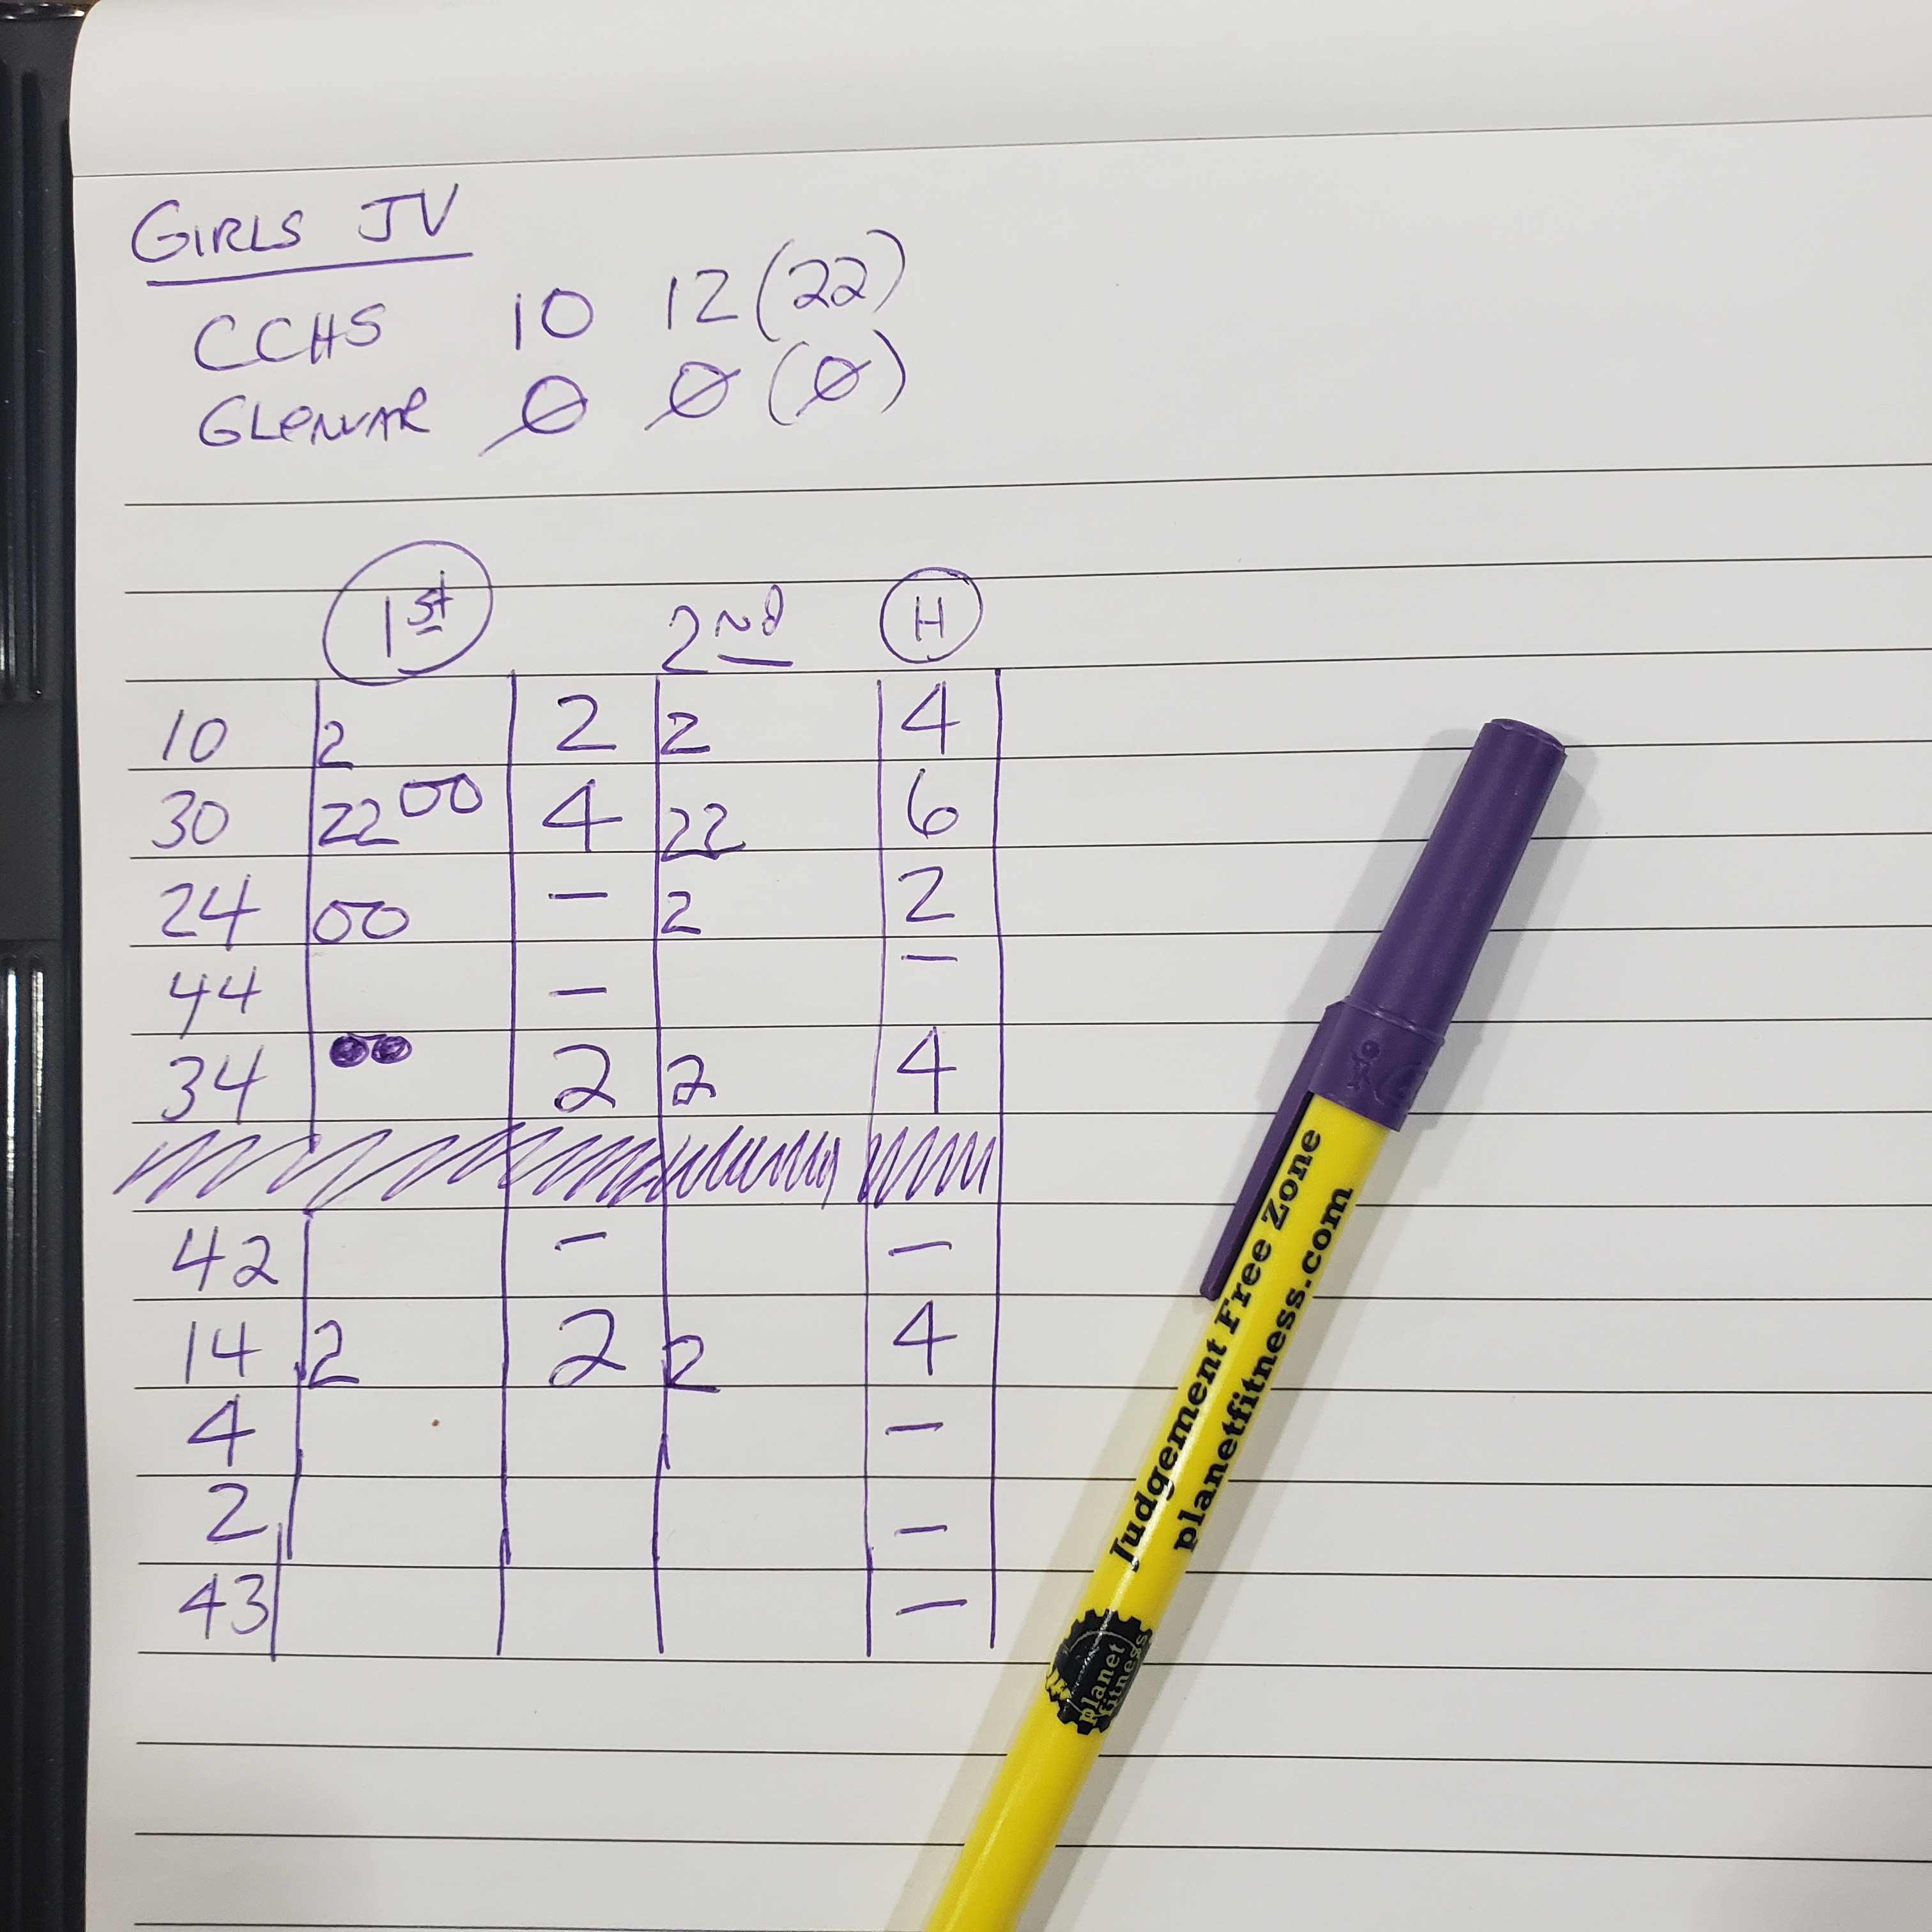 GIRLS JV
CCHS 10 12 (22)
GLENVAR 0 0 (0)
1st 2ND H
10 2 2 2 4
30 22 00 4 22 6
24 00 – 2 2
44 – –
34 2 2 4
42 – –
14 2 2 2 4
4 –
2 –
43 –
Judgement Free Zone
planetfitness.com
planet
fitness